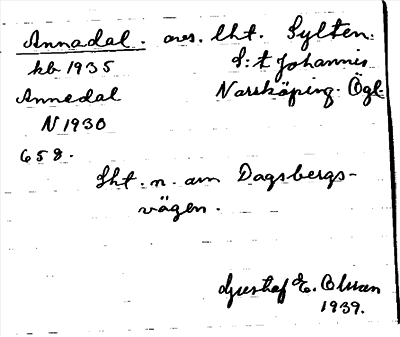 Annadal. avs. lht. Sylten.
kb 1935 S:t Johannis
Annedal Norrköping. Ögl.
N 1930
658.
Lht. n. om Dagsbergs-
vägen.
Gusthaf E. Olsson
1939.